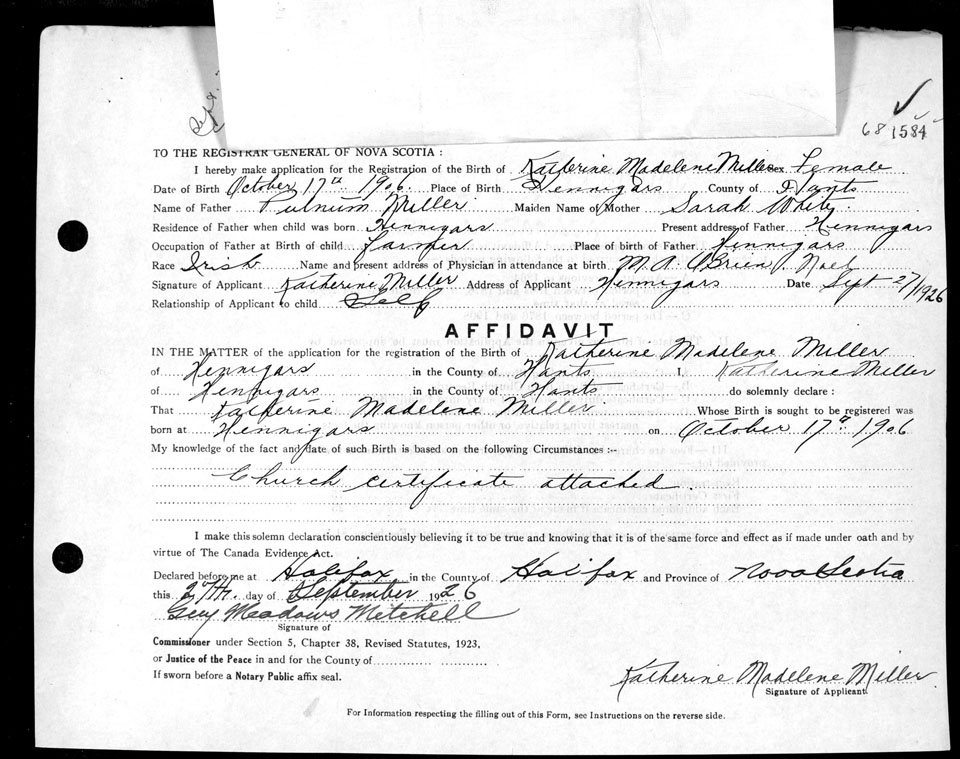 68 1584
TO THE REGISTRAR GENERAL OF NOVA SCOTIA :
I hereby make application for the Registration of the Birth of Katherine Madelene Miller Sex Female
Date of Birth October 17th 1906. Place of Birth Hennigars County of Hants
Name of Father Putnum Miller Maiden Name of Mother Sarah White
Residence of Father when child was born Hennigars Present address of Father Hennigars
Occupation of Father at Birth of child farmer Place of birth of Father Hennigars
Race Irish Name and present address of Physician in attendance at birth M. A. O'Brien Noel
Signature of Applicant Katherine Miller Address of Applicant Hennigars Date Sept 27/1926
Relationship of Applicant to child Self
AFFIDAVIT
IN THE MATTER of the application for the registration of the Birth of Katherine Madelene Miller
of Hennigars in the County of Hants I, Katherine Miller
of Hennigars in the County of Hants do solemnly declare :
That Katherine Madelene Miller Whose Birth is sought to be registered was
born at Hennigars on October 17th 1906
My knowledge of the fact and date of such Birth is based on the following Circumstances :--
Church certificate attached.
I make this solemn declaration conscientiously believing it to be true and knowing that it is of the same force and effect as if made under oath and by
virtue of The Canada Evidence Act.
Declared before me at Halifax in the County of Halifax and Province of Nova Scotia
this 27th. day of September 1926
Guy Meadows Mitchell
Signature of
Commissioner under Section 5, Chapter 38, Revised Statutes, 1923,
or Justice of the Peace in and for the County of
If sworn before a Notary Public affix seal.
Katherine Madelene Miller
Signature of Applicant.
For Information respecting the filling out of this Form, see Instructions on the reverse side.